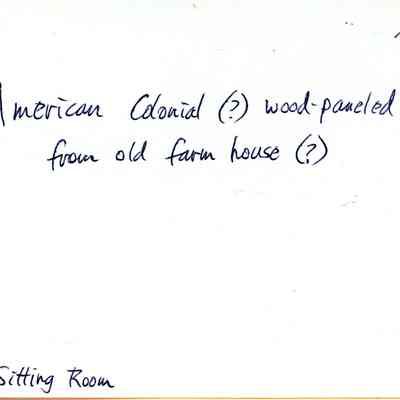 American Colonial (?) wood-paneled
from old farm house (?)
Sitting Room